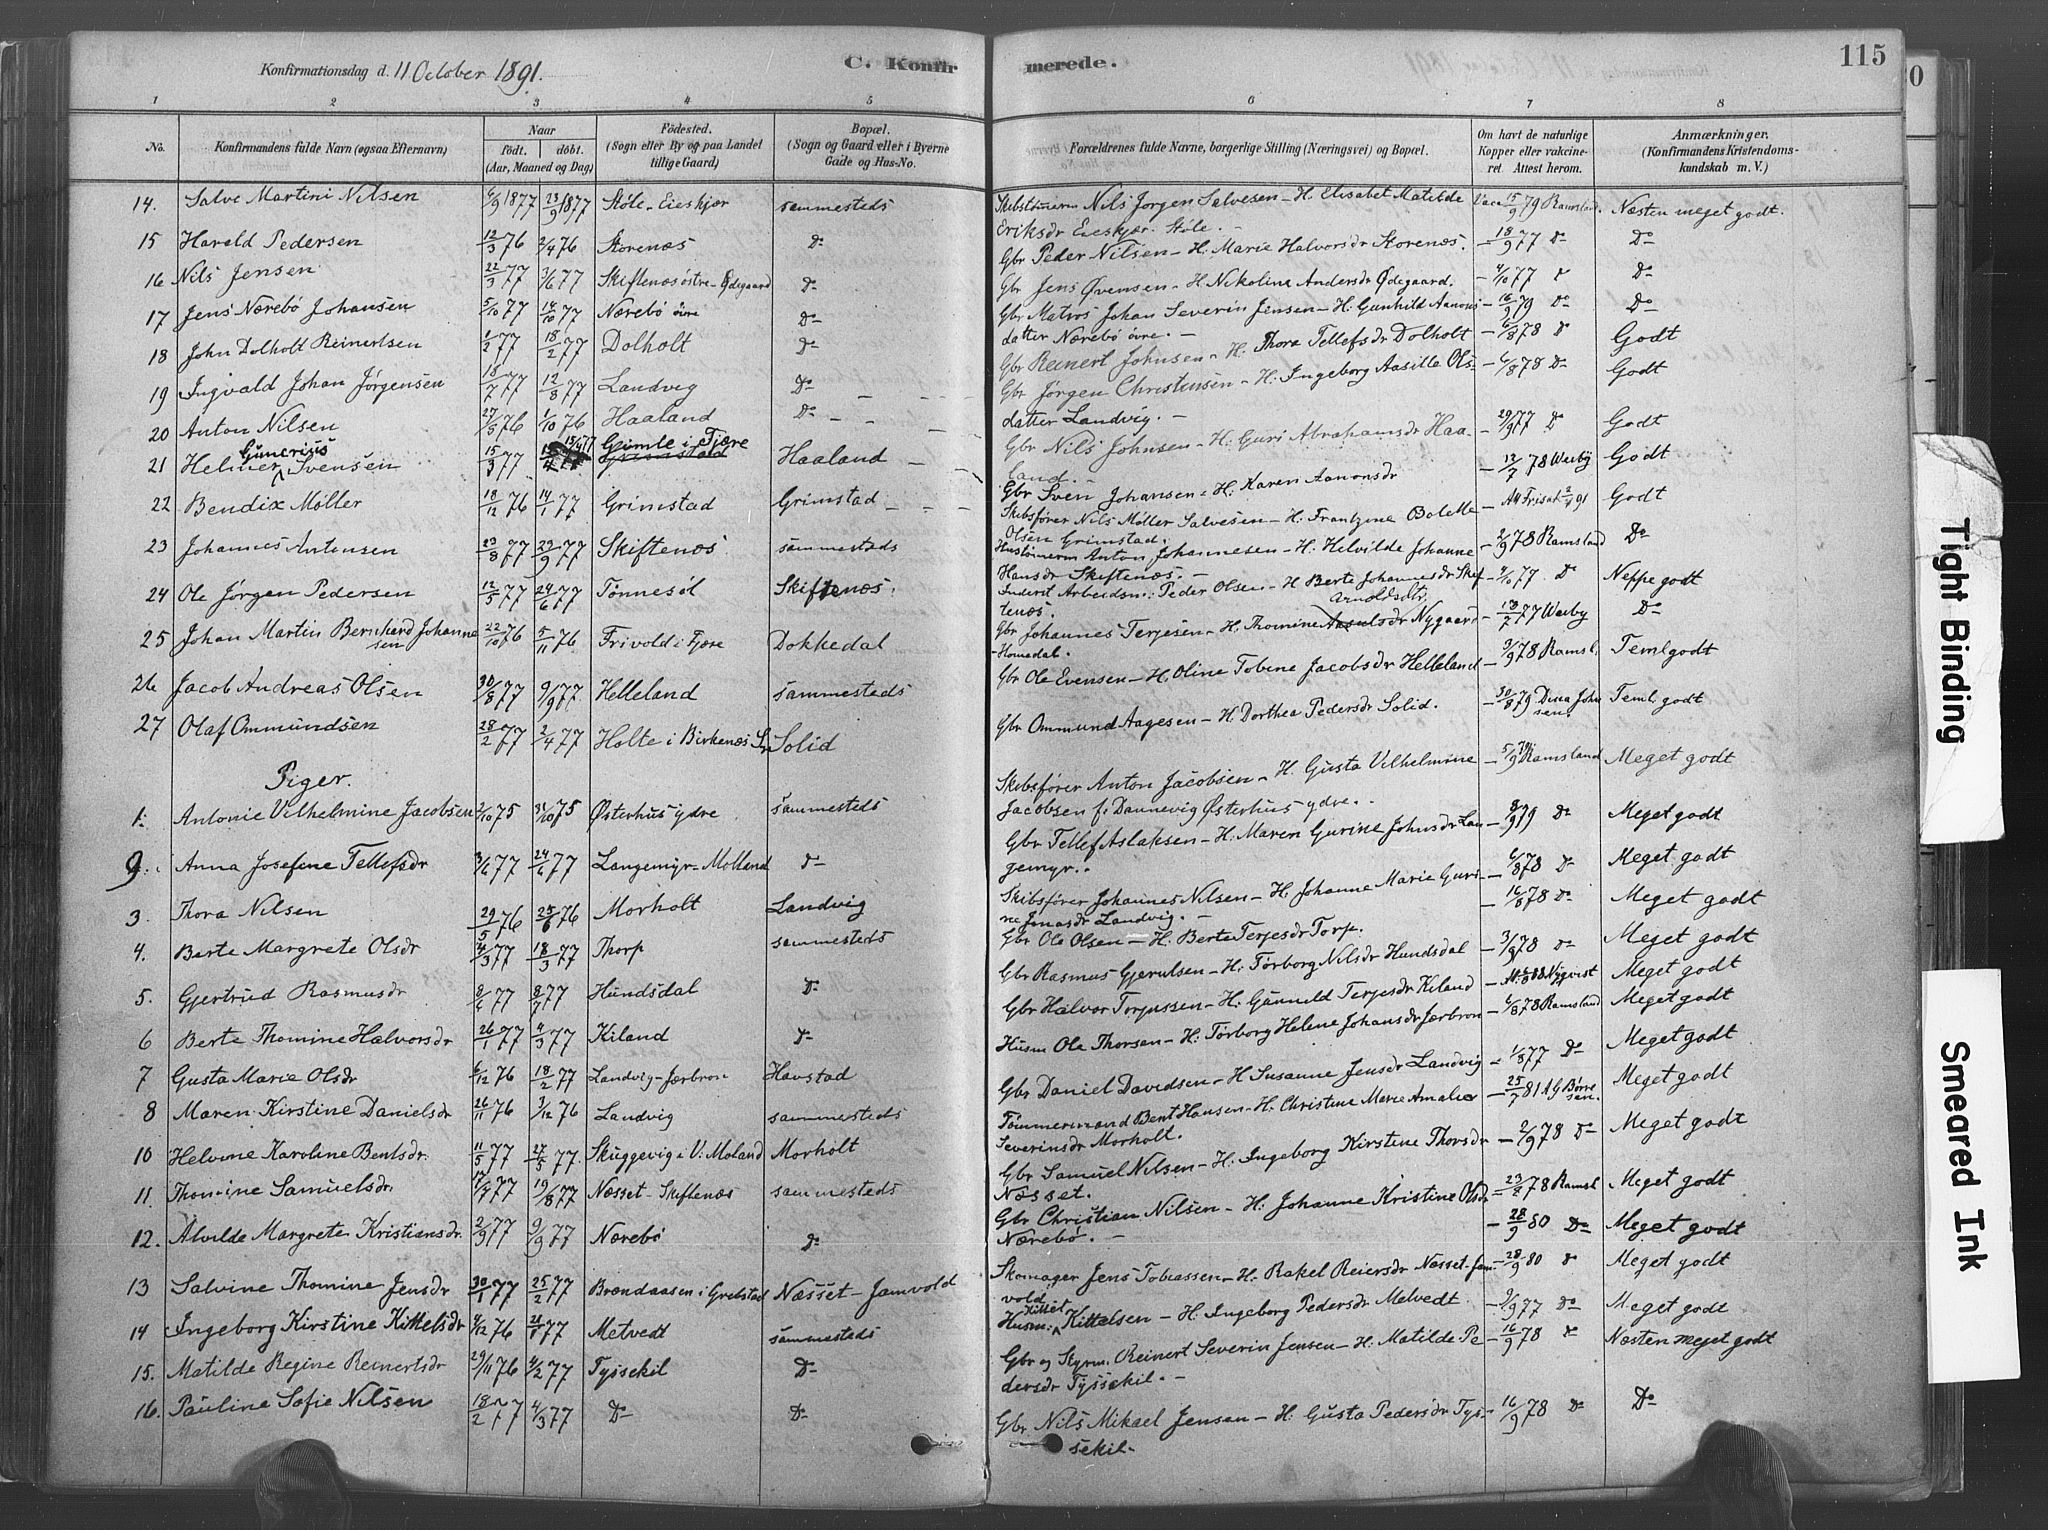 Konfirmationsdag d. 11 October 1891.
C. Konfirmerede.
115
1 2 3 4 5 6 7 8
No.
Konfirmandens fulde Navn (ogsaa Efternavn)
Naar
födt. döbt.
(Aar, Maaned og Dag)
Födested.
(Sogn eller By og paa Landet tillige Gaard)
Bopæl.
(Sogn og Gaard eller i Byerne Gade og Hus-No.
Forældrenes fulde Navne, borgerlige Stilling (Næringsvei) og Bopæl.
Om havt de naturlige Kopper eller vakcineret Attest herom.
Anmærkninger.
(Konfirmandens Kristendomskundskab m. V.)
14. Salve Martini Nilsen 6/9 1877 23/9 1877 Støle-Eieskjær sammesteds Nils Jørgen Salvesen - H. Elisabet Matilde Vacc 15/9 79 Ramsland. Næsten meget godt.
Eriksdr Eieskjær. Støle. -
15 Harald Pedersen 12/3 76 2/4 76 Storenæs Do Gbr Peder Nilsen - H. Marie Halvorsdr Storenæs. - 18/9 77 Do Do
16 Nils Jensen 22/3 77 3/6 77 Skiftenæs østre - Ødegaard Do Gbr Jens Øvensen - H. Nikoline Andersdr Ødegaard. - 4/10 77 Do Do
17 Jens Nærebö Johansen 5/10 77 14/10 77 Nærebö övre Do Gbr Matros Johan Severin Jensen - H. Gunhild Aanons - 16/9 79 Do Do
datter Nærebö övre. -
18 John Dolholt Reinertsen 1/2 77 18/2 77 Dolholt Do Gbr Reinert Johnsen - H. Thora Tellefsdr Dolholt - 6/8 78 Do Godt
19 Ingvald Johan Jørgensen 18/7 77 12/8 77 Landvig Do Gbr Jørgen Christensen - H. Ingeborg Aasille Ols- - 6/8 78 Do Godt
datter Landvig. -
20 Anton Nilsen 27/8 76 1/10 76 Haaland Do Gbr Nils Johnsen - H. Guri Abrahamsdr Haa- 29/9 77 Do Godt
land. -
21 Helmer Gunerius Svensen 15/3 77 15/4 77 Gimle i Fjære Grimstad Haaland Gbr Sven Johansen - H. Karen Aanonsdr - 12/7 78 Werby Godt
22 Bendix Möller 18/12 76 14/1 77 Grimstad Grimstad Skibsfører Nils Møller Salvesen - H. Frantzine Bolette - Att Frisat 2/4 91 Godt
Olsen Grimstad.
23 Johannes Antonsen 23/8 77 23/9 77 Skiftenæs sammesteds Anton Johannesen - H. Helvilde Johanne - 2/9 78 Ramsland Do
Hansdr Skiftenæs. -
24 Ole Jørgen Pedersen 12/5 77 24/6 77 Tønnesøl Skiftenæs. Inderst Arbeidsm. Peder Olsen - H Berte Johannesdr Skif - 4/10 77 Do Neppe godt
tenæs.
25 Johan Martin Bernhard Johannesen 22/10 76 5/11 76 Frivold i Fjære Dokkedal Gbr Johannes Terjesen - H. Thomine Arnoldsdtr Nygaard - 12/2 77 Werby Do
- Homedal.
26 Jacob Andreas Olsen 30/8 77 9/9 77 Helleland sammesteds Gbr Ole Evensen - H. Oline Tobine Jacobsdr Helleland - 3/9 78 Ramsl. Teml godt
27 Olaf Ommundsen 28/2 77 2/4 77 Holte i Birkenæs Solid Gbr Ommund Aagesen - H. Dorthea Pedersdr Solid. - 30/8 79 Dina Johnsen. Teml godt
Piger.
1. Antonie Vilhelmine Jacobsen 2/10 75 31/10 75 Østerhus ydre sammesteds Skibsfører Anton Jacobsen - H. Gusta Vilhelmine - 5/9 79 Ramsland Meget godt
Jacobsen f. Dannevig Østerhus ydre. -
9. Anna Josefine Tellefsdr 3/6 77 24/6 77 Langemyr - Molland Do Gbr Tellef Aslaksen - H. Maren Gurine Johnsdr Lan - 8/9 79 Do Meget godt
gemyr. -
3. Thora Nilsen 29/5 76 25/6 76 Morholt Landvig Skibsfører Johannes Nilsen - H. Johanne Marie Guri- - 6/8 78 Do Meget godt
ne Jonasdr Landvig. -
4. Berte Margrete Olsdr 4/3 77 18/3 77 Thorp sammesteds Gbr Ole Olsen - H. Berte Terjesdr Torp. - 16/8 78 Do Meget godt
5. Gjertrud Rasmusdr 8/6 77 8/7 77 Hundsdal Do Gbr Rasmus Gjerulsen - H. Torborg Nilsdr Hundsdal - 3/9 78 Do Meget godt
6 Berte Thomine Halvorsdr 26/1 77 4/3 77 Kiland Do Gbr Halvor Torjussen - H. Gunneld Terjesdr Kiland 88 Nyqvist Meget godt
7 Gusta Marie Olsdr 6/12 76 18/2 77 Landvig-Jærbron Havstad Husm Ole Thorsen - H. Torborg Helene Johansdr Jærbron - 6/8 78 Ramsland Meget godt
8 Maren Kirstine Danielsdr 26/11 76 3/12 76 Landvig sammesteds Gbr Daniel Davidsen - H Susanne Jensdr Landvig - 1/8 77 Do Meget godt
10 Helvine Karoline Bentsdr. 11/5 77 27/5 77 Skuggevig i V. Moland Morholt Tömmermand Bent Hansen - H. Christine Marie Amalie - 25/7 81 A G Børresen. Meget godt
Severinsdr Morholt.
11. Thomine Samuelsdr. 17/7 77 19/8 77 Næsset - Skiftenæs sammesteds Gbr Samuel Nilsen - H. Ingeborg Kirstine Thorsdr - 2/9 78 Do Meget godt
Næsset.
12. Alvilde Margrete Kristiansdr. 2/9 77 9/9 77 Nærebö Do Gbr Christian Nilsen - H. Johanne Kristine Olsdr - 23/2 78 Ramsl Meget godt
Nærebö. - - 28/9 80 Do Meget godt
13 Salvine Thomine Jensdr 30/1 77 25/2 77 Brændaasen i Grebstad Næsset - Jamvold Skomager Jens Tobiassen - H. Rakel Reiersdr Næsset-Jam - 28/9 80 Do Meget godt
vold
14 Ingeborg Kirstine Kittelsdr 4/12 76 21/1 77 Metvedt sammesteds Husm. Kittel Kittelsen - H. Ingeborg Pedersdr Metvedt. - 9/9 77 Do Meget godt
15. Matilde Regine Reinertsdr 29/11 76 4/2 77 Tyssekil Do Gbr og Styrm. Reinert Severin Jensen - H. Matilde Pe - 16/9 78 Do Næsten meget godt
dersdr Tyssekil. -
16. Pauline Sofie Nilsen 18/2 77 4/3 77 Do Do Gbr Nils Mikael Jensen - H. Gusta Pedersdr Tys- - 16/9 78 Do Do
sekil -
Tight Binding
Smeared Ink